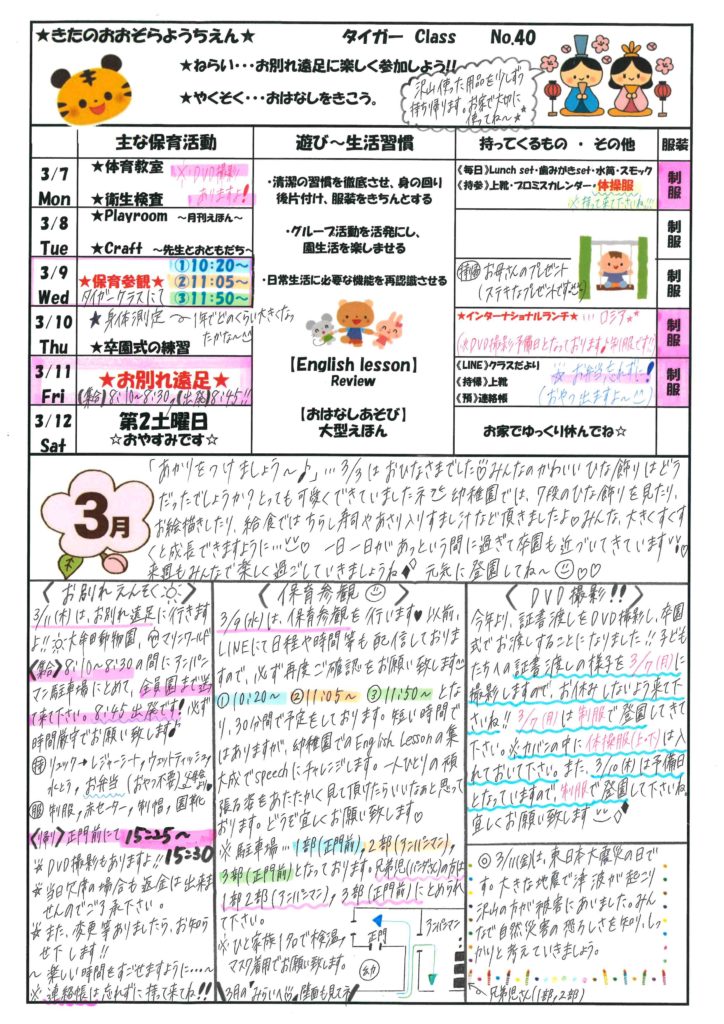 ★きたのおおぞらようちえん★ タイガー Class No.40
★ねらい・・・お別れ遠足に楽しく参加しよう!!
★やくそく・・・おはなしをきこう。
沢山使った用品を少しずつ
持ち帰ります。お家で大切に
使ってね〜★
主な保育活動 遊び〜生活習慣 持ってくるもの ・ その他 服装
3/7
Mon
★体育教室
★衛生検査
※・DVD撮影
ありますよ!
3/8
Tue
★Playroom 〜月刊えほん〜
★Craft 〜先生とおともだち〜
3/9
Wed
★保育参観★
タイガークラスにて
①10:20〜
②11:05〜
③11:50〜
3/10
Thu
★身体測定〜1年でどのくらい大きくなっ
たかな〜♡
★卒園式の練習
3/11
Fri
★お別れ遠足★
(集合)8:10〜8:30、(出発)8:45!!
3/12
Sat
第2土曜日
☆おやすみです☆
・清潔の習慣を徹底させ、身の回り
後片付け、服装をきちんとする
・グループ活動を活発にし、
園生活を楽しませる
・日常生活に必要な機能を再認識させる
【English lesson】
Review
【おはなしあそび】
大型えほん
《毎日》Lunch set・歯みがきset・水筒・スモック
《持参》上靴・プロミスカレンダー・体操服
※持って来て下さいね!!!
制服
制服
持帰 お母さんのプレゼント
(ステキなプレゼントです
制服
★インターナショナルランチ★・・・ロシア★
(※DVD撮影予備日となっております♪制服です!!)
制服
《LINE》クラスだより
《持帰》上靴
《預》連絡帳
☆お弁当忘れずに!
(おやつ出ますよ〜
制服
お家でゆっくり休んでね☆
3月
「あかりをつけましょう〜♪」…3/3はおひなさまでした♡みんなのかわいいひな飾りはどう
だったでしょうか?とっても可愛くできていましたネ 幼稚園では、7段のひな飾りを見たり、
お絵描きしたり、給食ではちらし寿司やあさり入りすまし汁など頂きましたよ♡みんな、大きくすくす
くと成長できますように…♡ 一日一日があっという間に過ぎて卒園も近づいてきています♡♡
来週もみんなで楽しく過ごしていきましょうね♦ 元気に登園してね〜☺♡♡
〈お別れえんそく〉
3/11(木)は、お別れ遠足に行きます
よ!! 大牟田動物園、マリンワールド
〈集合〉8:10〜8:30の間にアンパン
マン駐車場にとめて、全員園まで送
って来て下さい。8:45出発です!必ず
時間厳守でお願い致します♪
持 リュック→レジャーシート、ウェットティッシュ、
水とう、お弁当(おやつ不要)
服 制服、赤セーター、制帽、園靴
〈帰り〉正門前にて15:25〜
15:30
※DVD撮影もありますよ!!
※当日欠席の場合も返金は出来ま
せんのでご了承下さい。
※また、変更等ありましたら、お知ら
せ下します!!
〜楽しい時間をすごせますように…〜
※連絡帳は忘れずに持って来てね!!
〈保育参観☺〉
3/9(水)は、保育参観を行います♥以前、
LINEにて日程や時間等も配信しておりま
すので、必ず再度ご確認をお願い致します
①10:20〜 ②11:05〜 ③11:50〜とな
り、30分間で予定をしております。短い時間で
はありますが、幼稚園でのEnglish Lessonの集
大成でspeechにチャレンジします。一人ひとりの頑
張る姿をあたたかく見て頂けたらいいなぁと思って
おります。どうぞ宜しくお願い致します♡
※駐車場…1部(正門前)、2部(アンパンマン)、
3部(正門前)となっております。兄弟児(パンダさん)の方は
1部2部(アンパンマン)、3部(正門前)にとめられ
て下さい。
※ひと家族1名で検温、
マスク着用でお願い致します。
3月の「みらいへ」、壁面も見てネ
正門
アンパンマン
幼
兄弟児さん(1部、2部)
〈DVD撮影!!〉
今年より、証書渡しをDVD撮影し、卒園
式でお渡しすることになりました!!子ども
たちへの証書渡しの様子を3/7(月)に
撮影しますので、お休みしないよう来て下
さいね!!3/7(月)は制服で登園してきて
下さい。※カバンの中に体操服(上・下)は入
れておいて下さい。また、3/10(木)は予備日
となっていますので、制服で登園して下さいね。
宜しくお願い致します
◎3/11(金)は、東日本大震災の日で
す。大きな地震で津波が起こり
沢山の方が被害にあいました。みん
なで自然災害の恐ろしさを知り、しっ
かりと考えていきましょう。